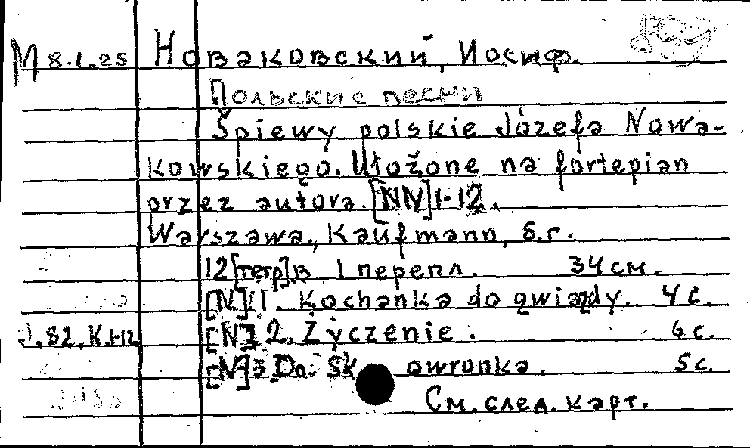 М 8.1.25 Новаковский, Иосиф.
Польские песни
Śpiewy polskie Józefa Nowa-
kowskiego. Ułożone na fortepian
przez autora. [NN] 1-12.
Warszawa, Kaufmann, б.г.
12 [тетр.] в 1 перепл. 34 см.
[N] 1. Kochanka do gwiazdy. 4 с.
[N] 2. Życzenie. 6 с.
[N] 3. Do. Skowronka. 5 с.
См. след. карт.